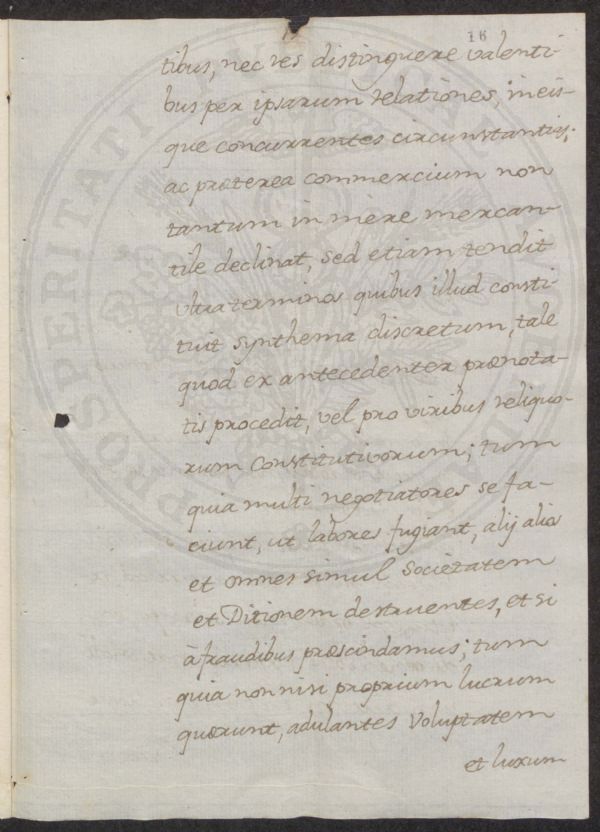 16
tibus, nec res distinguere valenti-
bus per ipsarum relationes, in eis-
que concurrentes circunstantias;
ac præterea commercium non
tantum in mere mercan-
tile declinat, sed etiam tendit
ultra terminos quibus illud consti-
tuit synthema discretum, tale
quod ex antecedenter prænota-
tis procedit, vel pro viribus reliquo-
rum Constitutivorum; tum
quia multi negotiatores se fa-
ciunt, ut labores fugiant, alij alios
et omnes simul Societatem
et Ditionem destruentes, et si
à fraudibus præscindamus; tum
quia non nisi proprium lucrum
quærunt, adulantes Voluptatem
et luxum
PROSPERITATI